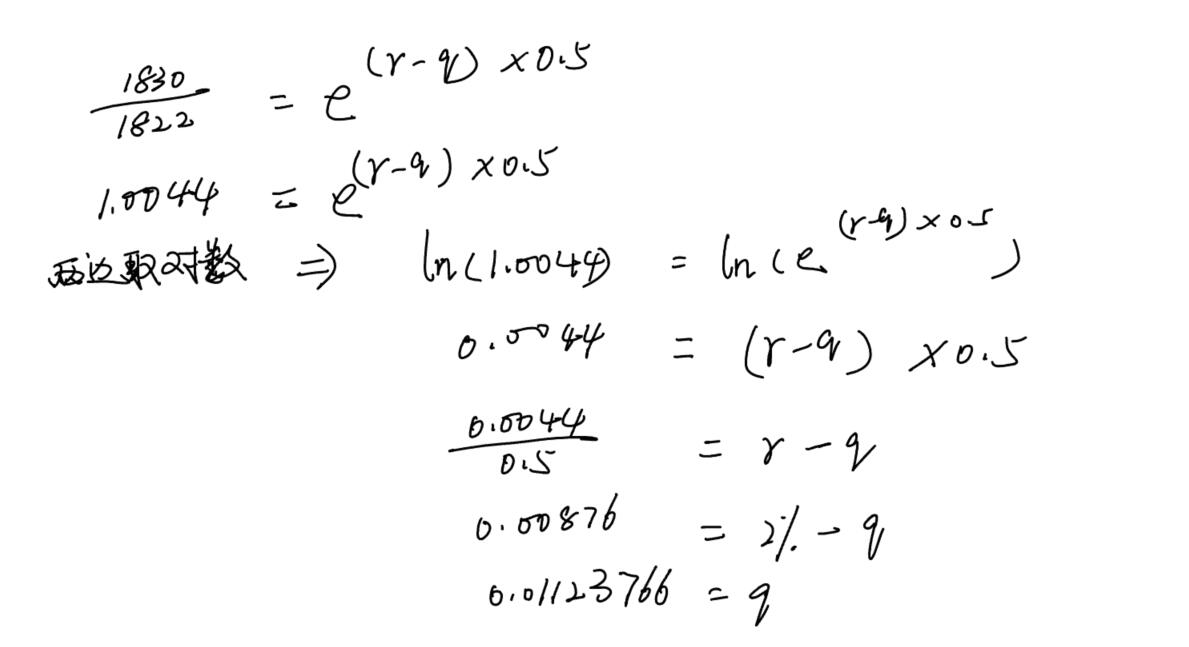 1830/1822 = e^(r-q)×0.5
1.0044 = e^(r-q)×0.5
两边取对数 ⇒ ln(1.0044) = ln(e^(r-q)×0.5)
0.0044 = (r-q) ×0.5
0.0044/0.5 = r-q
0.00876 = 2%-q
0.01123766 = q